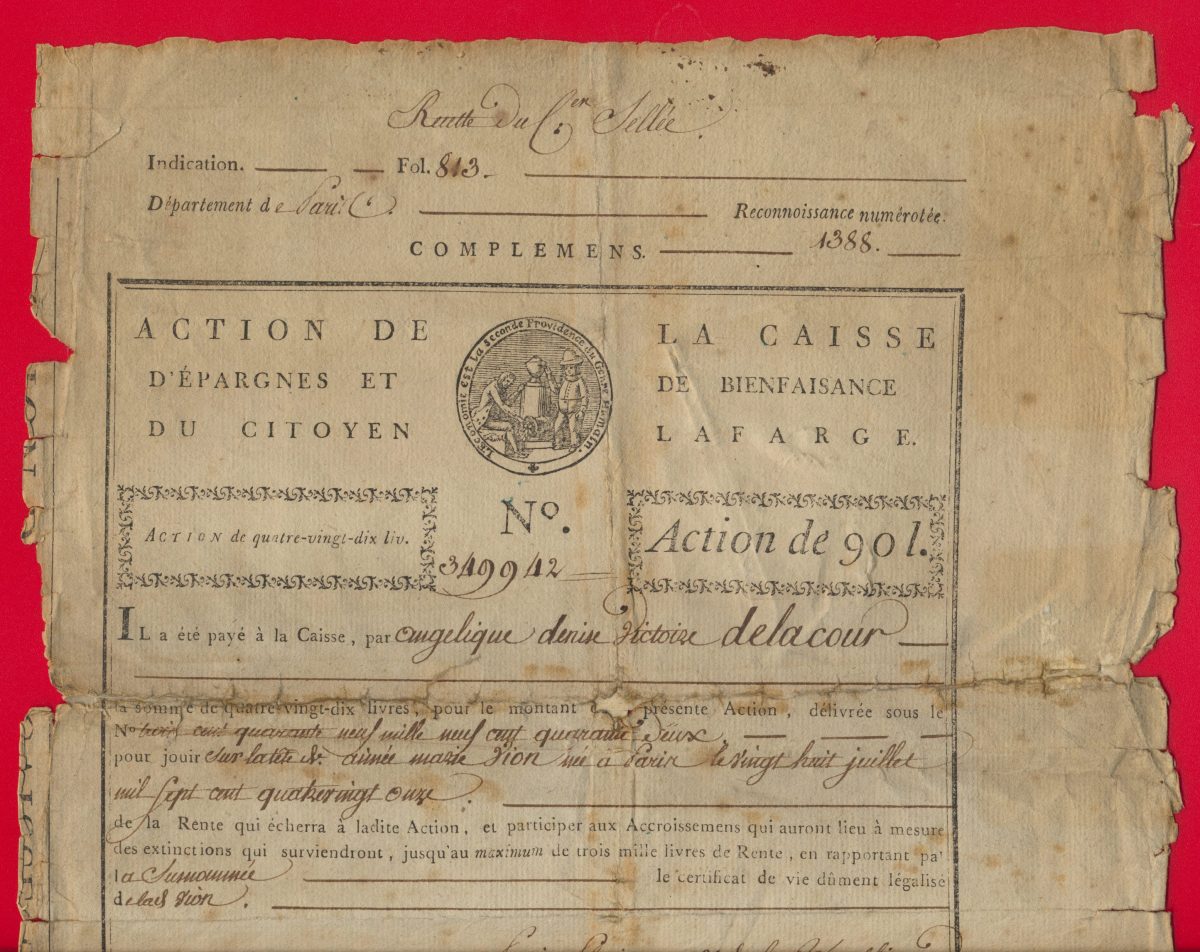 Rente du C.en Sellée.
Indication. Fol. 813.
Département de Paris
Reconnoissance numérotée.
COMPLEMENS. 1388.
ACTION DE LA CAISSE
D'ÉPARGNES ET DE BIENFAISANCE
DU CITOYEN LAFARGE.
L'économie est la seconde Providence du Genre humain.
ACTION de quatre-vingt-dix liv.
No. 349942
Action de 90 l.
IL a été payé à la Caisse, par angelique denise Victoire delacour
la somme de quatre-vingt-dix livres, pour le montant présente Action, délivrée sous le
No trois cent quarante neuf mille neuf cent quarante Deux,
pour jouir sur la tête de aimée marie Vion née à Paris le vingt huit juillet
mil sept cent quatrevingt onze.
de la Rente qui écherra à ladite Action, et participer aux Accroissemens qui auront lieu à mesure
des extinctions qui surviendront, jusqu'au maximum de trois mille livres de Rente, en rapportant par
la Surnommée le certificat de vie dûment légalisé
de lad Vion.